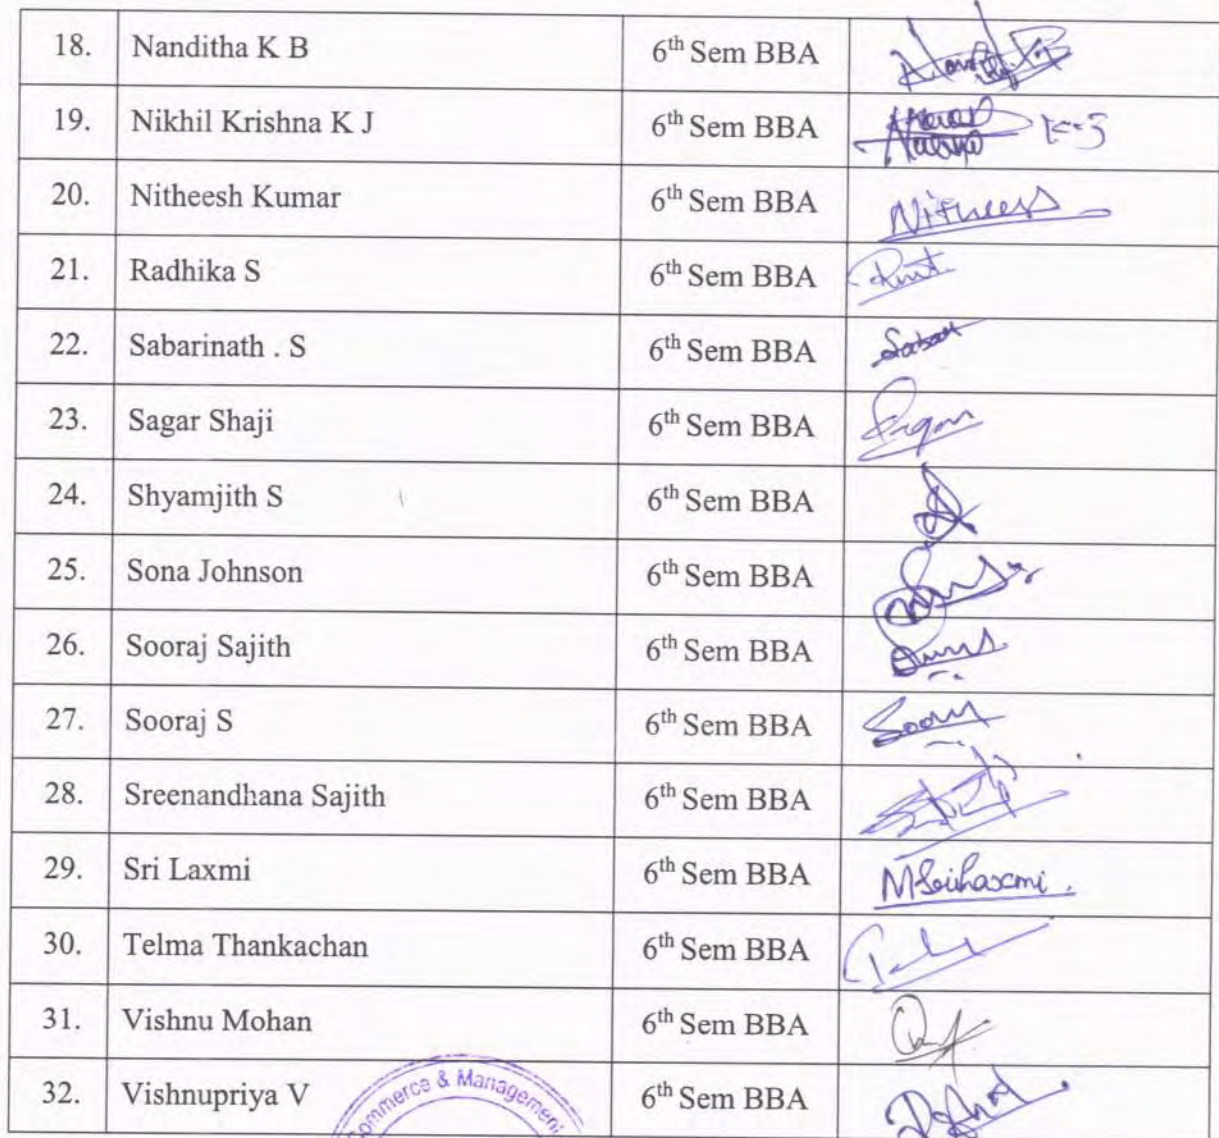 18. Nanditha K B 6th Sem BBA
19. Nikhil Krishna K J 6th Sem BBA K J
20. Nitheesh Kumar 6th Sem BBA Nitheesh
21. Radhika S 6th Sem BBA
22. Sabarinath . S 6th Sem BBA
23. Sagar Shaji 6th Sem BBA
24. Shyamjith S 6th Sem BBA
25. Sona Johnson 6th Sem BBA
26. Sooraj Sajith 6th Sem BBA
27. Sooraj S 6th Sem BBA
28. Sreenandhana Sajith 6th Sem BBA
29. Sri Laxmi 6th Sem BBA
30. Telma Thankachan 6th Sem BBA
31. Vishnu Mohan 6th Sem BBA
32. Vishnupriya V 6th Sem BBA
ommerce & Management